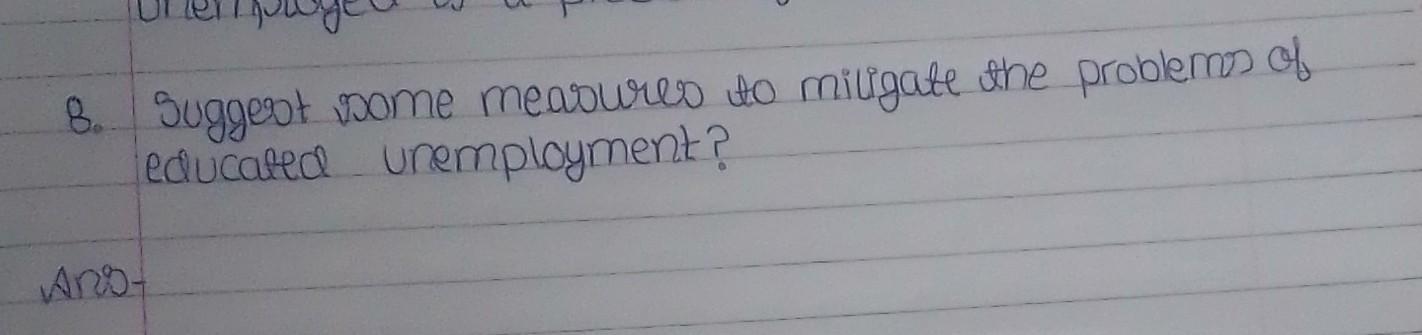 8. Suggest some measures to mitigate the problems of
educated unemployment?
Ans-